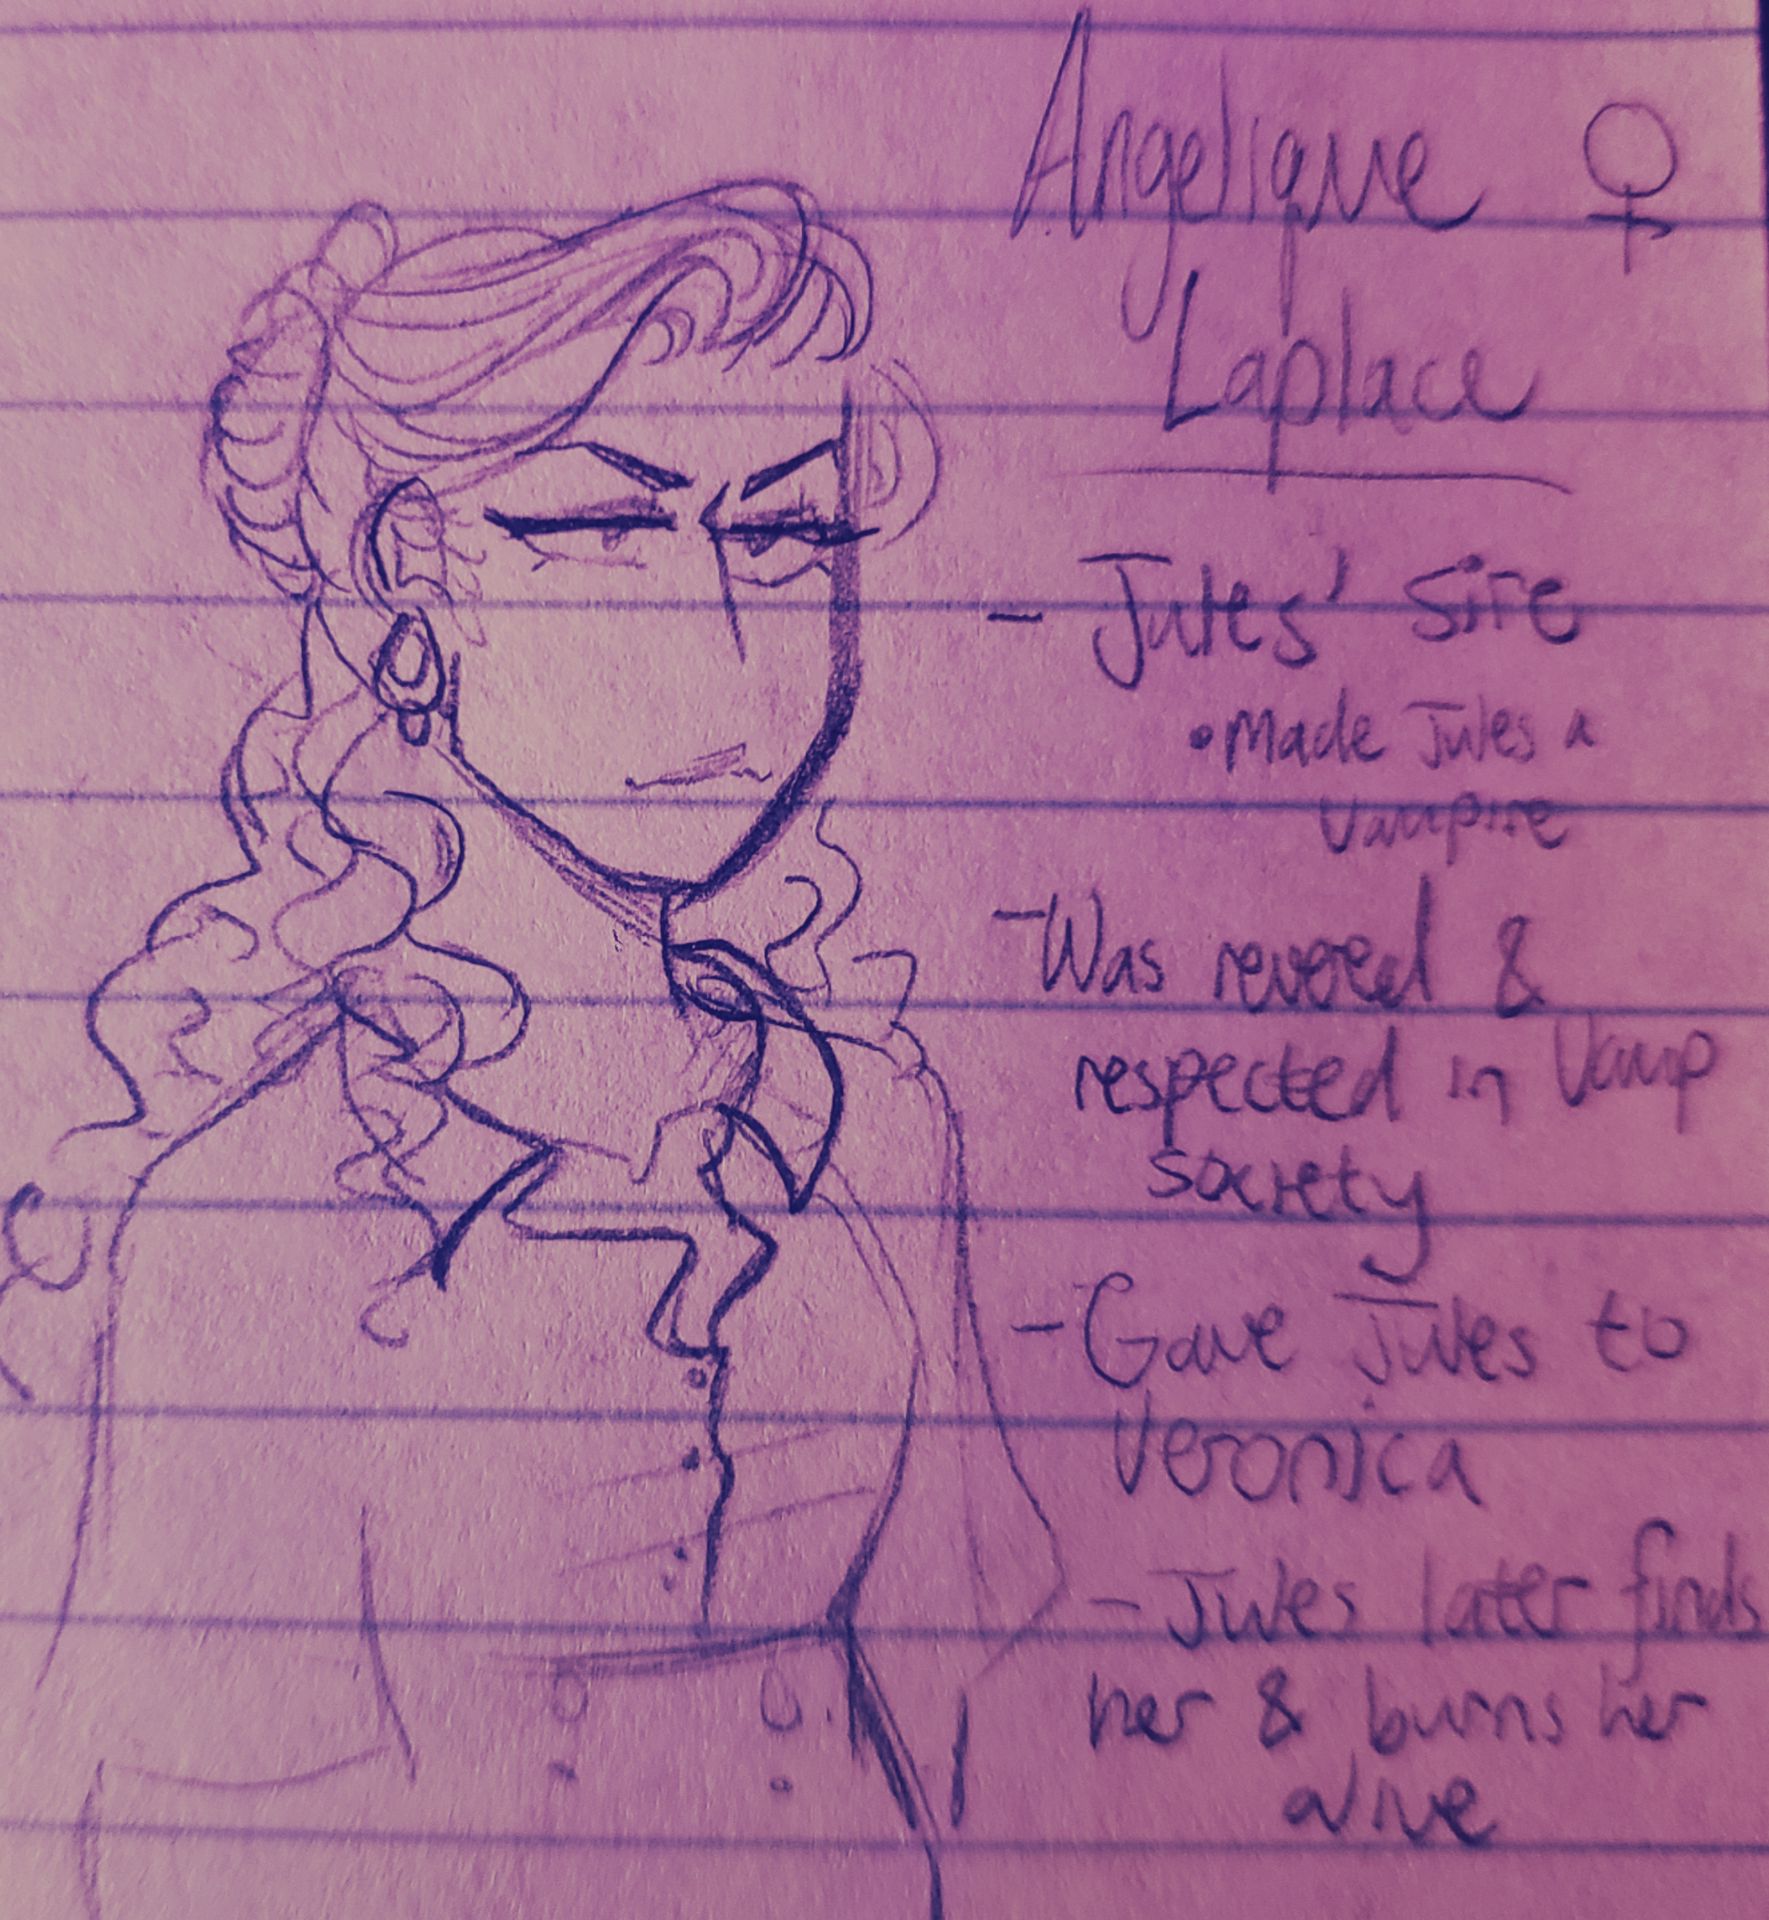 Angelique ♀
Laplace
- Jules' Sire
• Made Jules a
Vampire
- Was revered &
respected in Vamp
society
- Gave Jules to
Veronica
- Jules later finds
her & burns her
alive